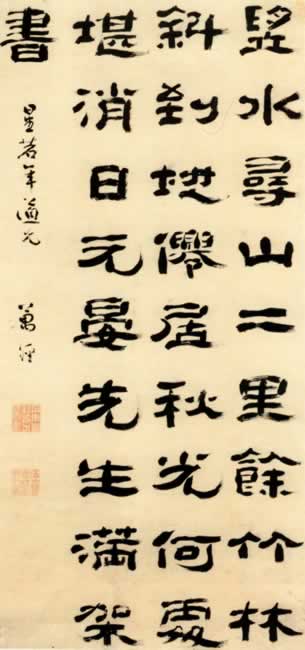 水尋山二里餘竹林
斜到地僊居秋光何處
堪消日元晏先生滿架
書
若年道兄
萬經